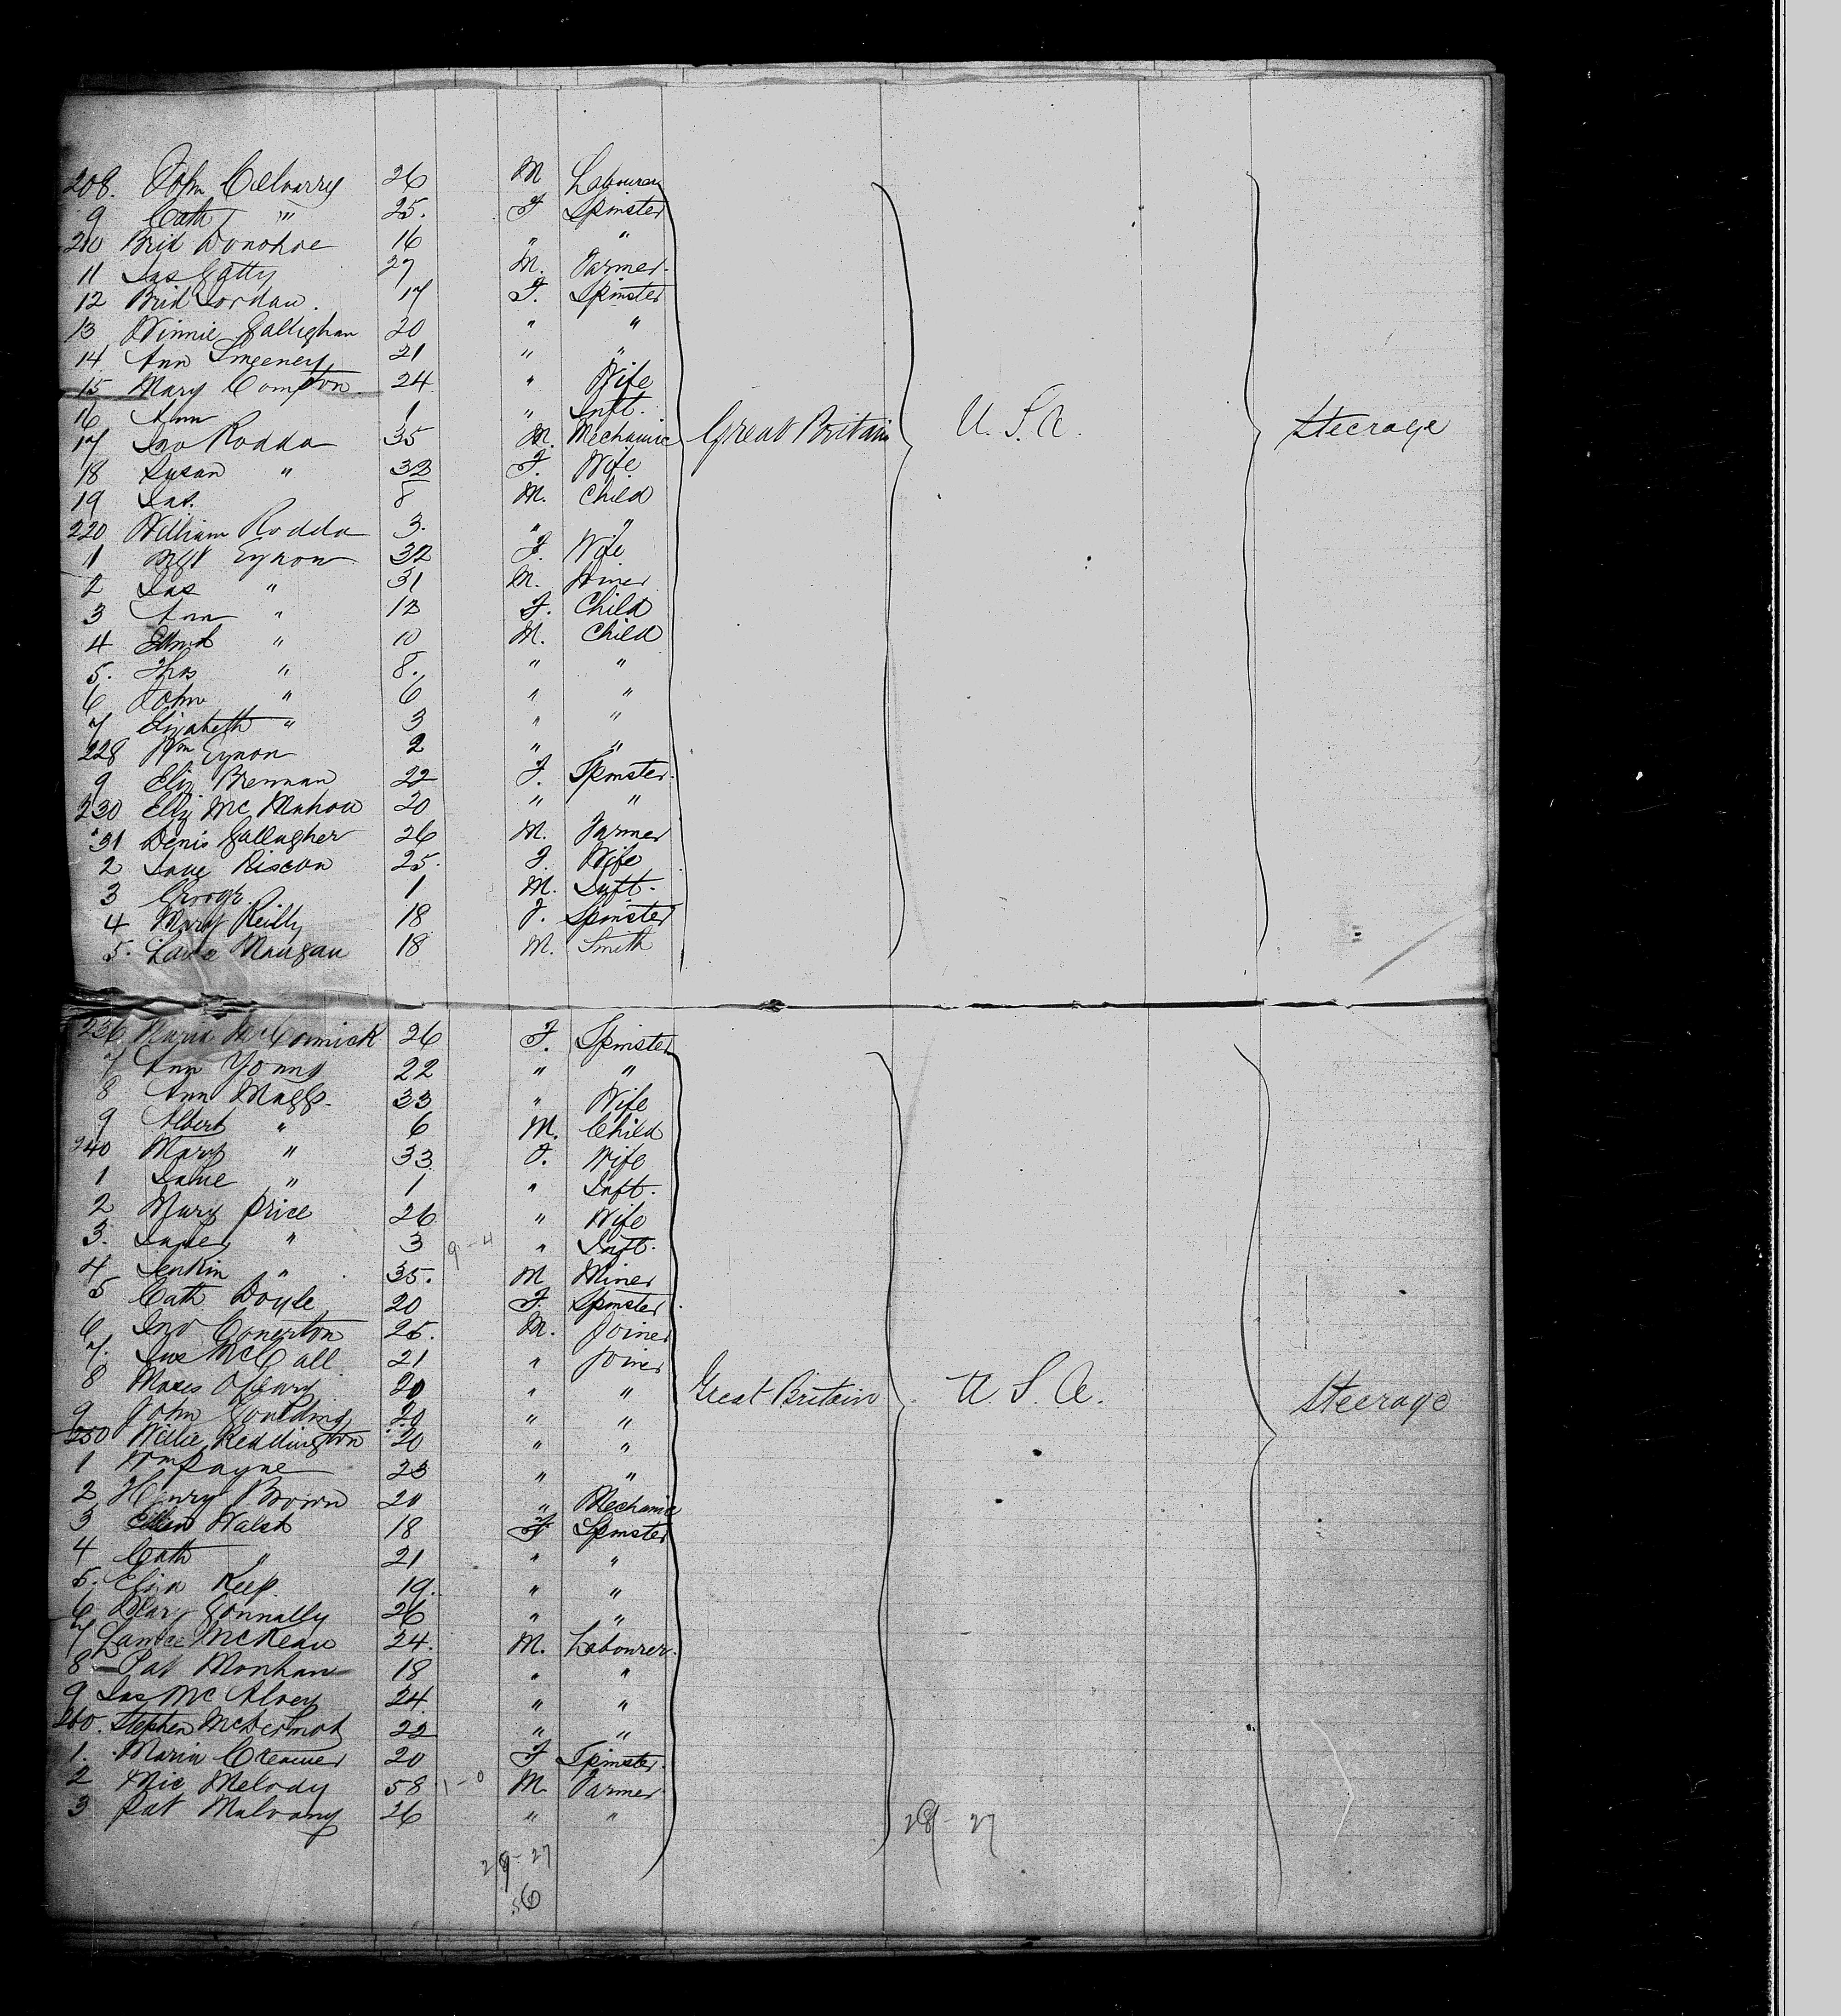 208. John Cilvarry 26 M Labourer
9 Cath " 25. F Spinster
210 Brid Donohoe 16 " "
11 Jas Gatty 27 M. Farmer.
12 Brid Jordan. 17 F. Spinster
13 Winnie Gallighan 20 " "
14 Ann Sweeney 21 " "
15 Mary Compton 24. " Wife
16 Ann 1 " Inft.
17 Jno Rodda 35 M. Mechanic Great Britain U. S. A. Steerage
18 Susan " 32 F. Wife
19 Jas. 8 M. Child
220 William Rodda 3. " "
1 Eynon 32 F. Wife
2 Jas " 31 M. Joiner
3 Ann " 12 F. Child
4 Edmd " 10 M. Child
5. Thos " 8. " "
6 John " 6 " "
7 Elizabeth " 3 " "
228 Wm Eynon 2 " "
9 Eliz Brennan 22 F. Spinster.
230 Eliz McMahon 20 " "
31 Denis Gallagher 26 M. Farmer
2 Jane Riscon 25. F. Wife
3 George. 1 M. Inft.
4 Mary Reilly 18 F. Spinster
5. Mangan 18 M. Smith
236 Maria McCormick 26 F. Spinster
7 Ann Young 22 " "
8 Ann Maggs. 33 " Wife
9 Albert " 6 M. Child
240 Mary " 33 F. Wife
1 Jane " 1 " Inft.
2 Mary Price 26 " Wife
3. " 3 9-4 " Inft.
4 Jenkin " 35. M Miner
5 Cath Doyle 20 F. Spinster.
6 Jno Conerton 25. M. Joiner
7. Jas McCall 21 " Joiner
8 Moses O'Leary 20 " " Great Britain U. S. A. Steerage
9 John Goulding 20 " "
250 Willie Reddington 20 " "
1 Wm Payne 23 " "
2 Henry Brown 20 " Mechanic
3 Ellen Walsh 18 F Spinster
4 Cath " 21 " "
5. Eliza Keep 19. " "
6 Mary Connally 26 " "
7 McKeau 24. M. Labourer.
8 Pat Monhan 18 " "
9 Jas McAlvey 24 " "
260. Stephen McDermot 22 " "
1. Maria Creamer 20 F Spinster.
2 Mic Melody 58 1-0 M. Farmer.
3 Pat Mulvany 26 " "
28-27
29-27
56